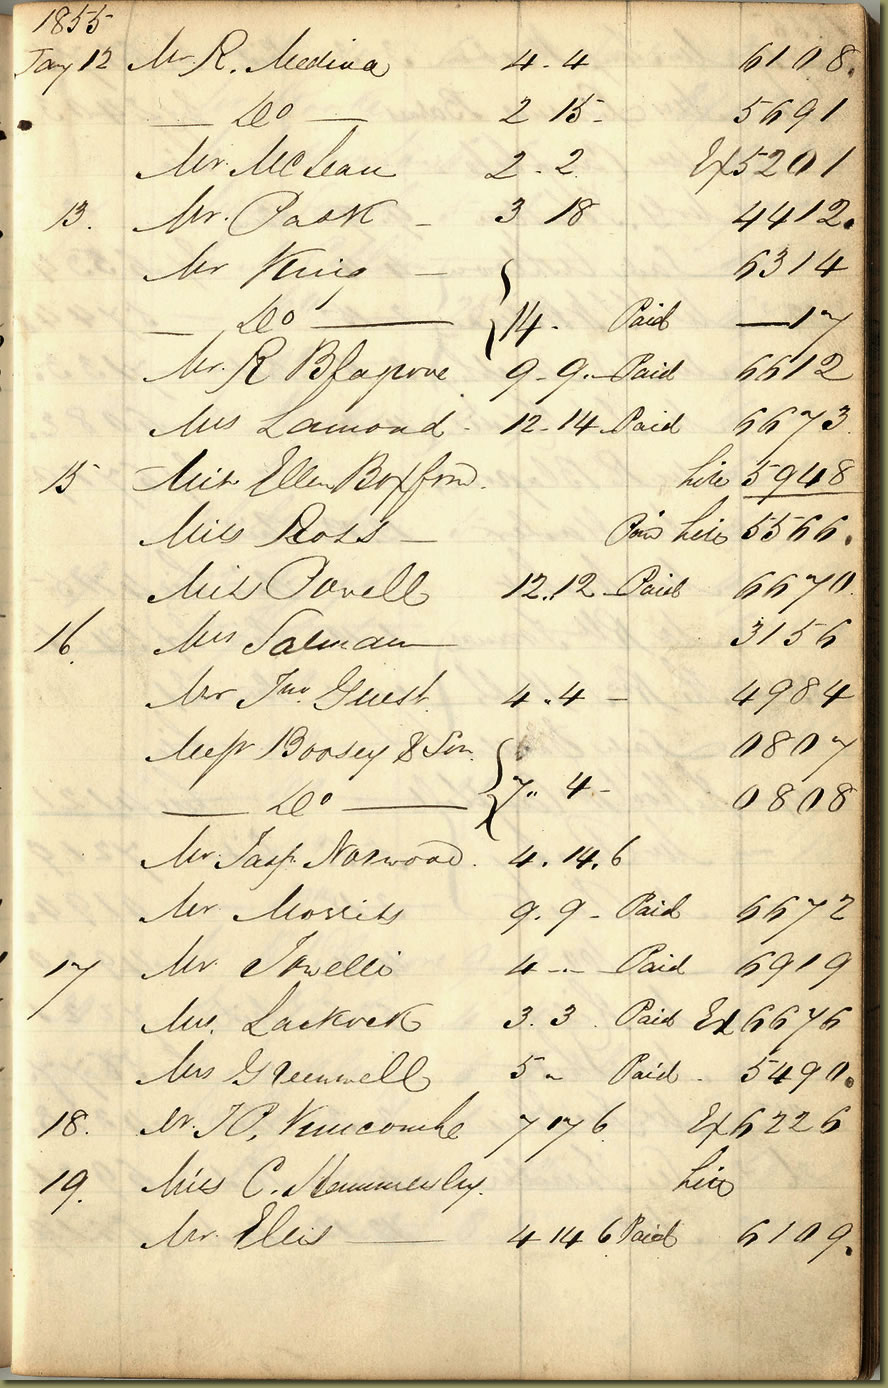 1855
Jany 12 Mr R. Medina 4. 4 6108.
— Do — 2 15 - 5691
Mr. McLean 2. 2 Ex 5201
13. Mr. Pask — 3 18 4412.
Mr King — 6314
— Do — 14. Paid — 17
Mr. R Blagrove 9. 9. — Paid 6612
Mrs Lamond - 12. 14 Paid 6673.
15 Miss Ellen Boxford. hire 5948
Miss Ross — Paid hire 5566.
Miss Powell 12.12 — Paid 6670.
16. Mrs Salman 3156
Mr Jno. Guest. 4. 4 — 4984
Messr Boosey & Son. 0807
— Do — 7. 4 - 0808
Mr. Norwood. 4. 14. 6
Mr Morris 9. 9 - Paid 6672
17 Mr 4 - - Paid 6919
3. 3. Paid Ex 6676
Mrs Greenwell 5 - Paid. 5490.
18. Mr. 7 17 6 Ex 6226
19. Miss C. Hammersley. hire
Mr. Ellis — 4 14 6 Paid 6109.